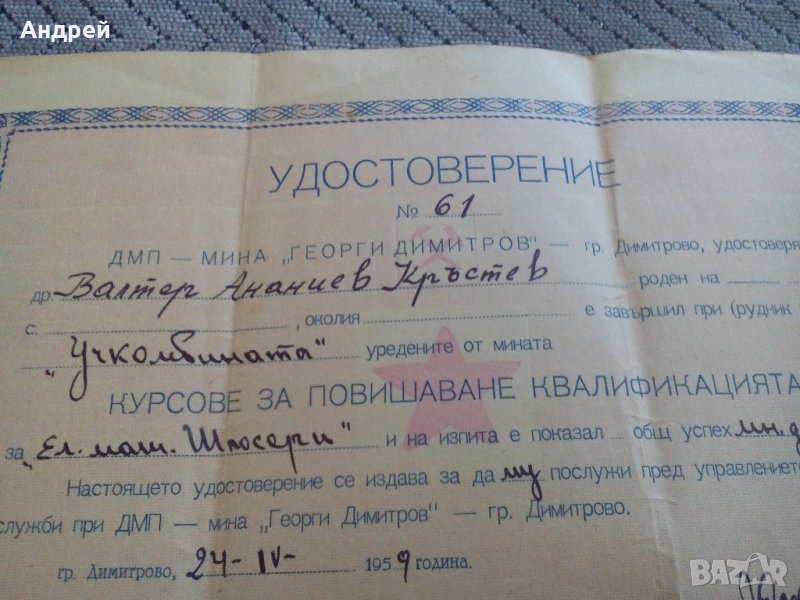 Андрей
УДОСТОВЕРЕНИЕ
№ 61
ДМП — МИНА „ГЕОРГИ ДИМИТРОВ" — гр. Димитрово, удостоверя
др. Валтер Ананиев Кръстев роден на
с. , околия е завършил при (рудник
„Учкомбината" уредените от мината
КУРСОВЕ ЗА ПОВИШАВАНЕ КВАЛИФИКАЦИЯТА
за „Ел. маш. Шлосери" и на изпита е показал общ успех мн. д
Настоящето удостоверение се издава за да му послужи пред управлението
служби при ДМП — мина „Георги Димитров" — гр. Димитрово.
гр. Димитрово, 24-IV- 1959 година.
BAZAR